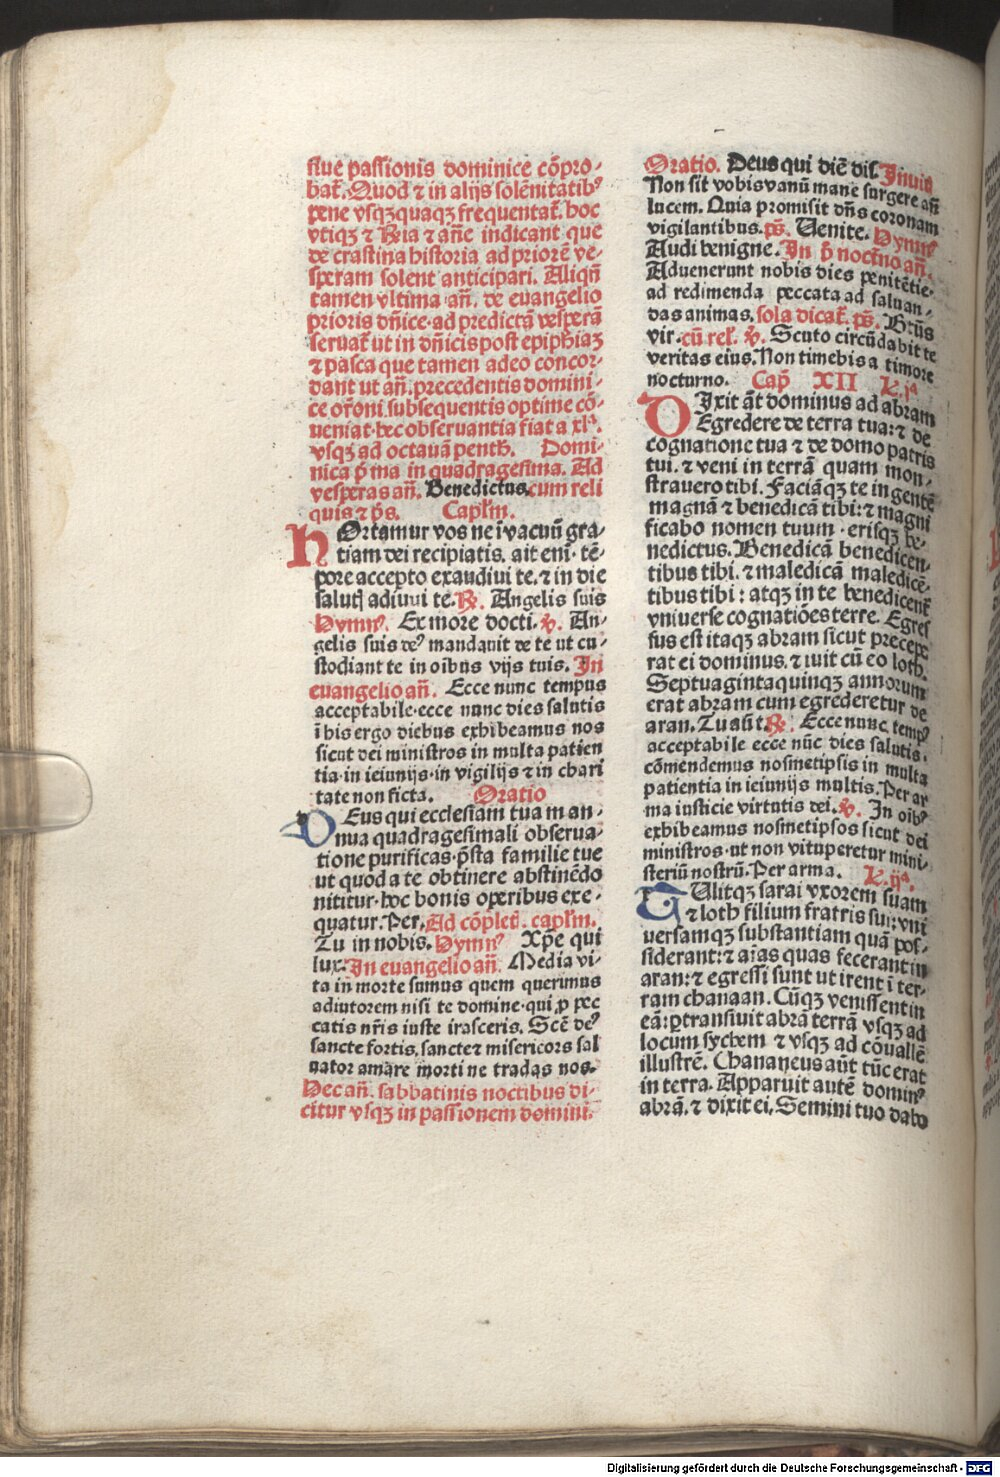 siue passionis dominice cōpro-
bat̃. Quod ⁊ in alijs solēnitatibꝰ
pene vsqꝫquaqꝫ frequentat̃. hoc
vtiqꝫ ⁊ R̃ia ⁊ añe indicant que
de crastina historia ad priorē ve-
speram solent anticipari. Aliqñ
tamen vltima añ. de euangelio
prioris dñice·ad predictā vesperā
seruat̃ ut in dñicis post epiphiaꝫ
⁊ pasca que tamen adeo concor-
dant ut añ. precedentis domini-
ce or̃oni subsequentis optime cō-
ueniat·hec obseruantia fiat a xl.ᵃ
vsqꝫ ad octauā penth̃. Domi-
nica p̃ma in quadragesima. Ad
vesperas añ. Benedictus.cum reli
quis ⁊ p̃s. Capl̃m.
HOrtamur vos ne ī vacuū gra-
tiam dei recipiatis. ait enī· tē-
pore accepto exaudiui te.⁊ in die
salutꝭ adiuui te. ℟. Angelis suis
Hymnꝰ. Ex more docti. ℣. An-
gelis suis deꝰ mandauit de te ut cu-
stodiant te in oībus vijs tuis. In
euangelio añ. Ecce nunc tempus
acceptabile·ecce nunc dies salutis
ī his ergo diebus exhibeamus nos
sicut dei ministros in multa patien
tia·in ieiunijs·in vigilijs ⁊ in chari
tate non ficta. Oratio
DEus qui ecclesiam tuam an-
nua quadragesimali obserua-
tione purificas·p̄sta familie tue
ut quod a te obtinere abstinēdo
nititur·hoc bonis operibus exe-
quatur. Per. Ad cōplet̃. capl̃m.
Tu in nobis. Hymnꝰ Xp̄e qui
lux. In euangelio añ. Media vi-
ta in morte sumus quem querimus
adiutorem nisi te domine·qui ꝓ pec
catis nr̃is iuste irasceris. Scē deꝰ
sancte fortis. sancte ⁊ misericors sal
uator amare morti ne tradas nos.
Hec añ. sabbatinis noctibus di-
citur vsqꝫ in passionem domini.
Oratio. Deus qui diē dis. Inuit̃
Non sit vobis vanū mane surgere añ
lucem. Quia promisit dñs coronam
vigilantibus. p̃s. Venite. Hymnꝰ
Audi benigne. In p̃ noctno añ.
Aduenerunt nobis dies penitētie·
ad redimenda peccata ad saluan-
das animas. sola dicat̃. p̃s. Btũs
vir. cū rel̃. ℣. Scuto circūdabit te
veritas eius. Non timebis a timore
nocturno. Cap̃ XII L̃.jᵃ
DIxit āt dominus ad abram
Egredere de terra tua:⁊ de
cognatione tua ⁊ de domo patris
tui.⁊ veni in terrā quam mon-
strauero tibi. Faciāqꝫ te in gentē
magnā ⁊ benedicā tibi:⁊ magni
ficabo nomen tuum·erisqꝫ be-
nedictus. Benedicā benedicen-
tibus tibi.⁊ maledicā maledicē-
tibus tibi: atqꝫ in te benedicent̃
vniuerse cognatiōes terre. Egres
sus est itaqꝫ abram sicut precepe
rat ei dominus.⁊ iuit cū eo loth.
Septuaginta quinqꝫ annorum
erat abram cum egrederetur de
aran. Tu aūt. ℟. Ecce nunc tempꝰ
acceptabile ecce nūc dies salutis.
cōmendemus nosmetipsis in multa
patientia in ieiunijs multis. Per ar
ma iusticie virtutis dei. ℣. In oibꝰ
exhibeamus nosmetipsos sicut dei
ministros·ut non vituperetur mini-
steriū nostrū. Per arma. L̃.ijᵃ.
TUlitqꝫ sarai vxorem suam
⁊ loth filium fratris sui:vni
uersamqꝫ substantiam quā pos-
siderant:⁊ aīas quas fecerant in
aran:⁊ egressi sunt ut irent ī ter-
ram chanaan. Cūqꝫ venissent in
eā:ꝑtransiuit abrā terrā vsqꝫ ad
locum sychem ⁊ vsqꝫ ad cōuallē
illustrē. Chananeus aūt tūc erat
in terra. Apparuit autē dominꝰ
abrā.⁊ dixit ei. Semini tuo dabo
Digitalisierung gefördert durch die Deutsche Forschungsgemeinschaft - DFG